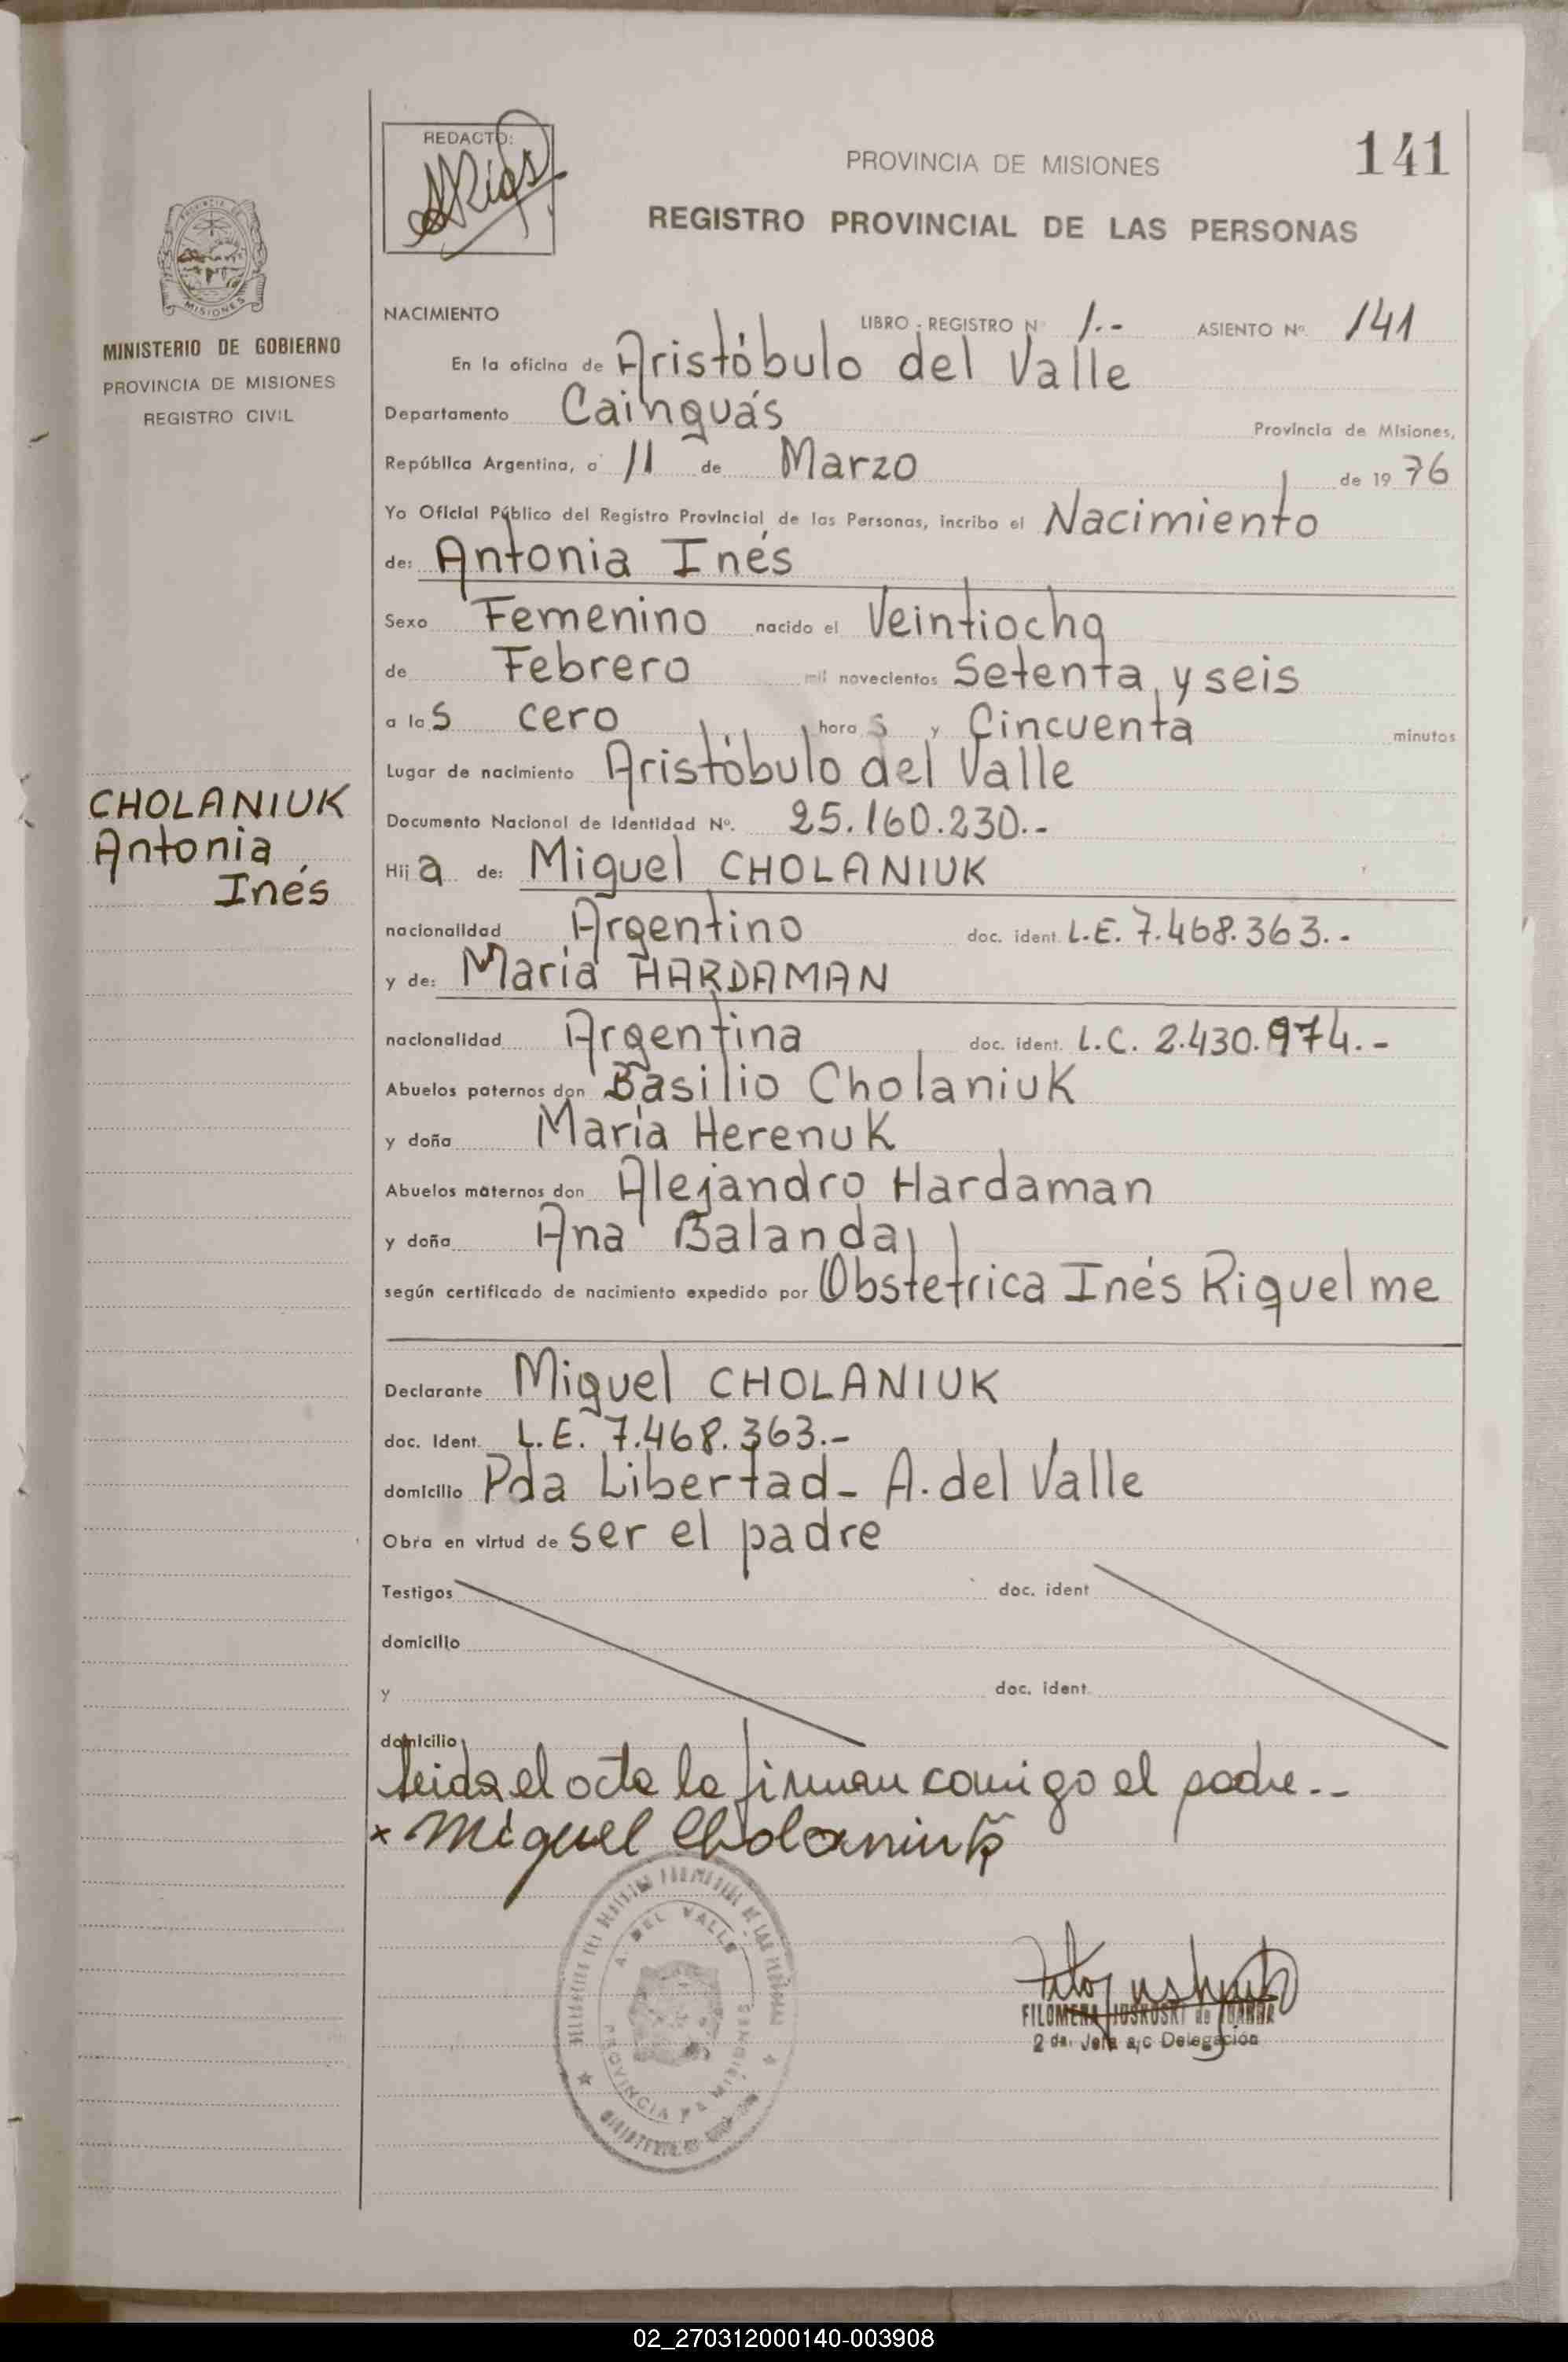 REDACTO:
PROVINCIA DE MISIONES
141
REGISTRO PROVINCIAL DE LAS PERSONAS
MISIONES
MINISTERIO DE GOBIERNO
PROVINCIA DE MISIONES
REGISTRO CIVIL
CHOLANIUK
Antonia
Inés
NACIMIENTO LIBRO - REGISTRO Nº 1.- ASIENTO Nº. 141
En la oficina de Aristóbulo del Valle
Departamento Cainguás Provincia de Misiones,
República Argentina, a 11 de Marzo de 19 76
Yo Oficial Público del Registro Provincial de las Personas, incribo el Nacimiento
de: Antonia Inés
Sexo Femenino nacido el Veintiocho
de Febrero mil novecientos Setenta y seis
a las cero horas y Cincuenta minutos
Lugar de nacimiento Aristóbulo del Valle
Documento Nacional de Identidad Nº. 25.160.230.-
Hija de: Miguel CHOLANIUK
nacionalidad Argentino doc. ident. L.E. 7.468.363.-
y de: María HARDAMAN
nacionalidad Argentina doc. ident. L.C. 2.430.974.-
Abuelos paternos don Basilio Cholaniuk
y doña María Herenuk
Abuelos maternos don Alejandro Hardaman
y doña Ana Balanda
según certificado de nacimiento expedido por Obstetrica Inés Riquelme
Declarante Miguel CHOLANIUK
doc. Ident. L.E. 7.468.363.-
domicilio Pda Libertad - A. del Valle
Obra en virtud de ser el padre
Testigos doc. ident
domicilio
y doc. ident.
domicilio
leida el acta la firman comigo el padre.--
x Miguel Cholaniuk
A. DEL VALLE
PROVINCIA DE MISIONES
FILOMENA
2 da. Jefa a/c Delegación
02_270312000140-003908